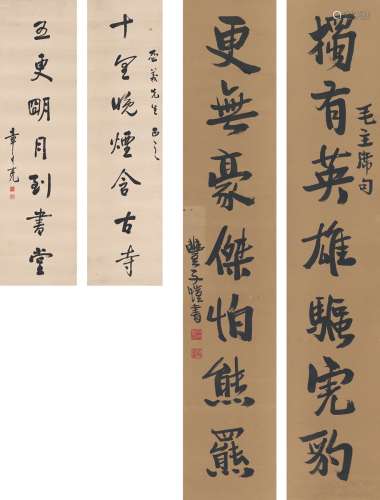 毛主席句
獨有英雄驅虎豹
更無豪傑怕熊羆
豐子愷書
義先生正之
十里晚煙含古寺
五更明月到書堂